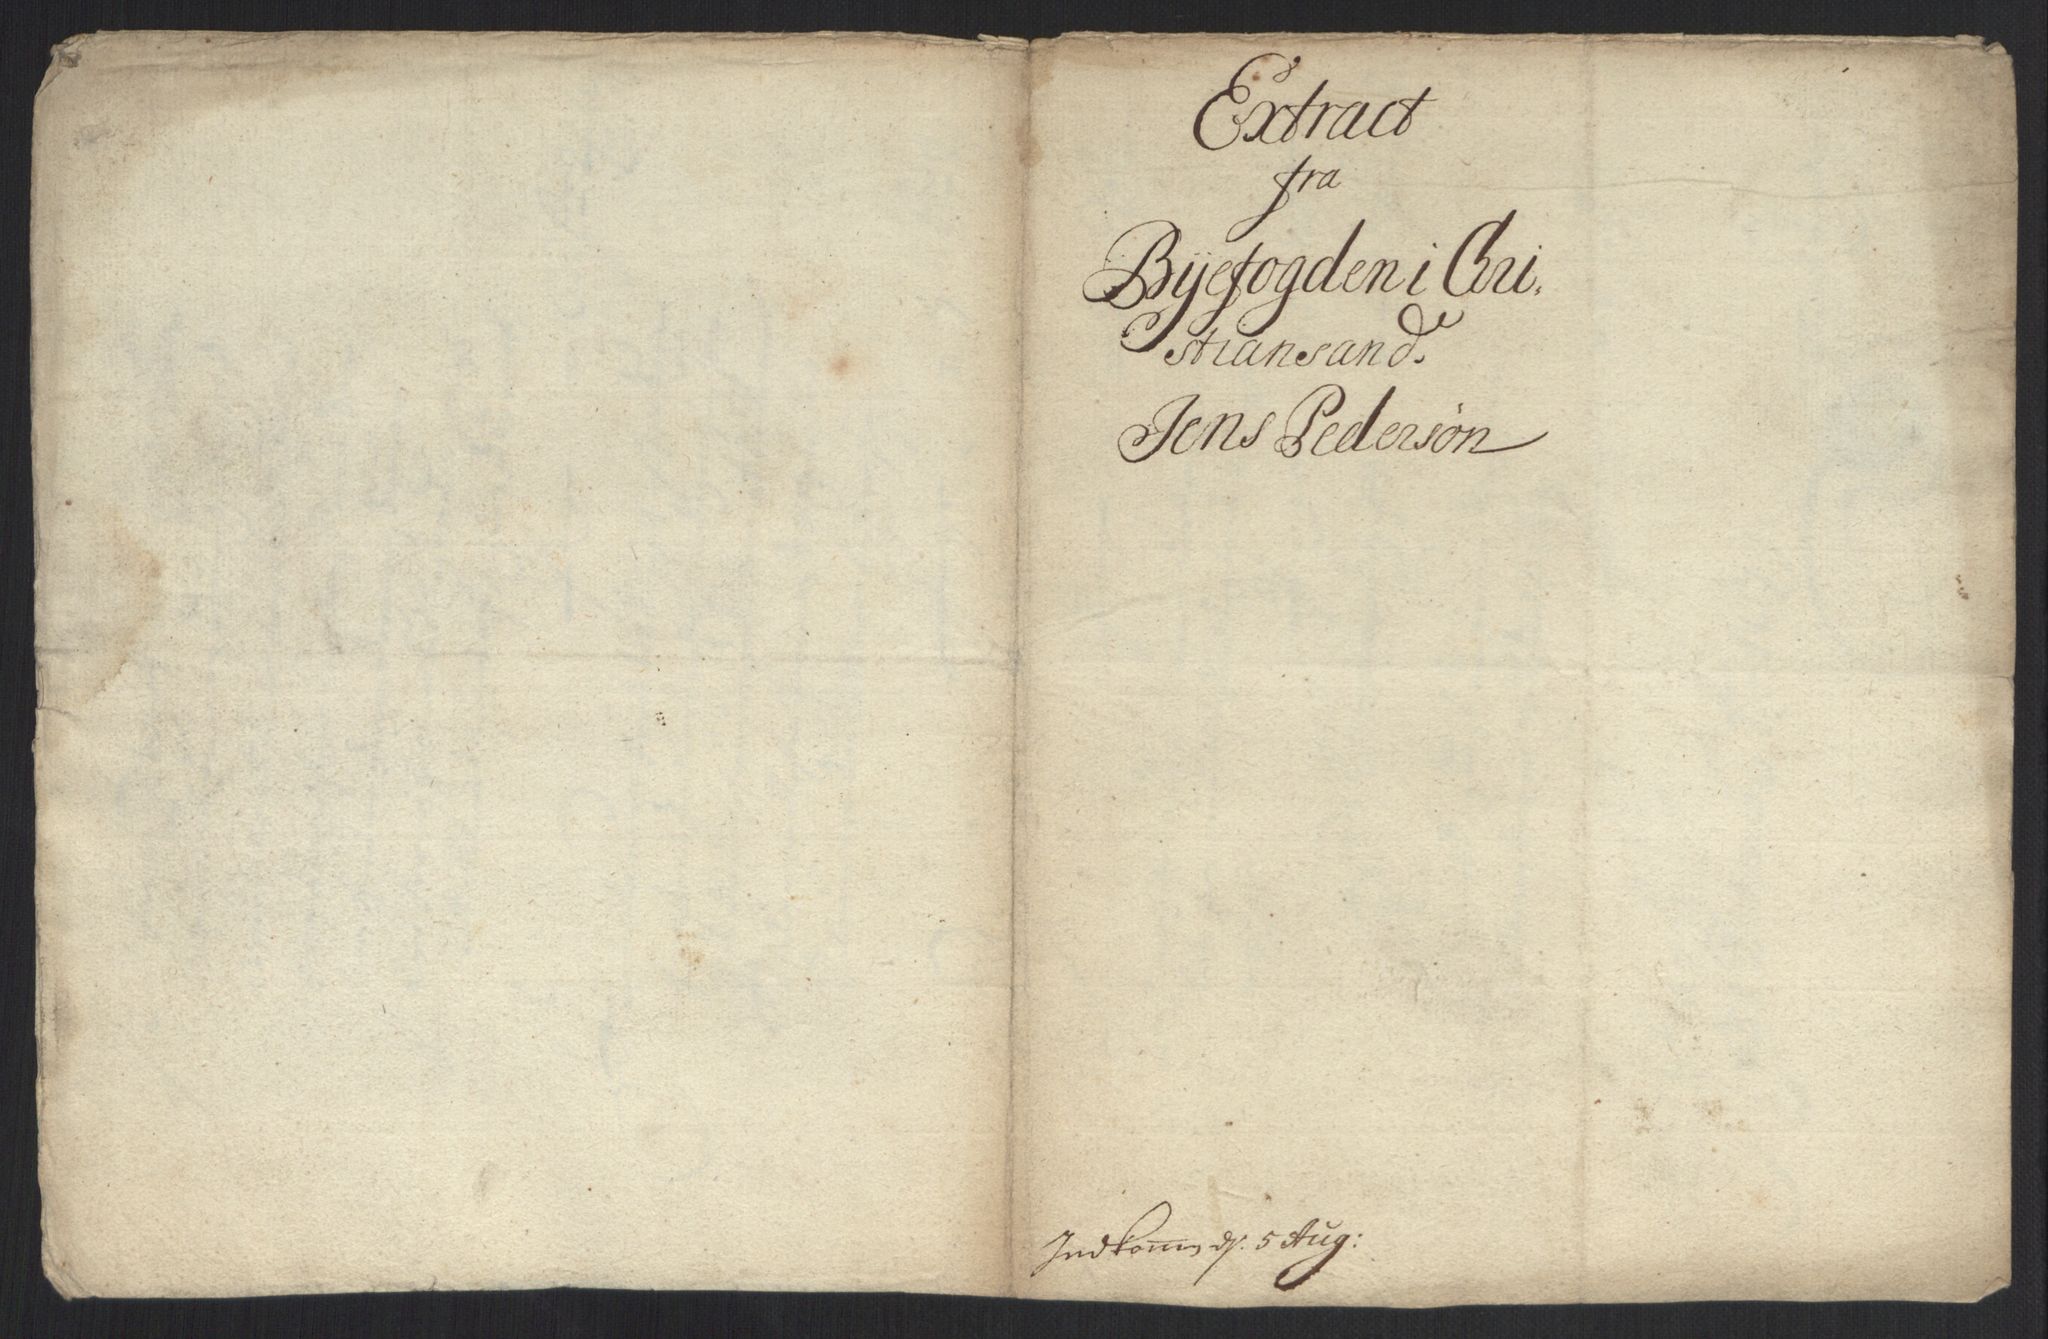 Extract
fra
Byefogden i Chri,
stiansand.
Jens Pedersøn
Indkom d. 5 Aug: